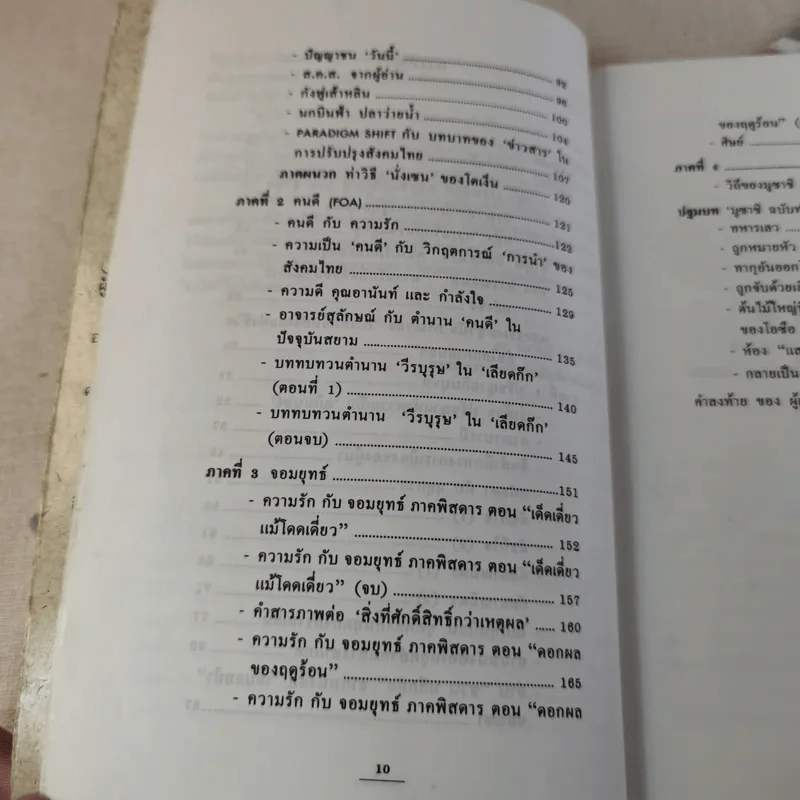 - ปัญญาชน 'วันนี้' ........ 92
- ส.ค.ส. จากผู้อ่าน ........ 98
- กังฟูเส้าหลิน ........ 100
- นกบินฟ้า ปลาว่ายน้ำ ........ 104
- PARADIGM SHIFT กับ บทบาทของ 'ข่าวสาร' ใน
การปรับปรุงสังคมไทย ........ 107
ภาคผนวก ท่าวิธี 'นั่งเซน' ของโดเง็น ........ 120
ภาคที่ 2 คนดี (FOA) ........ 121
- คนดี กับ ความรัก ........ 122
- ความเป็น 'คนดี' กับ วิกฤตการณ์ 'การนำ' ของ
สังคมไทย ........ 125
- ความดี คุณอานันท์ และ กำลังใจ ........ 129
- อาจารย์สุลักษณ์ กับ ตำนาน 'คนดี' ใน
ปัจจุบันสยาม ........ 135
- บททบทวนตำนาน 'วีรบุรุษ' ใน 'เลียดก๊ก'
(ตอนที่ 1) ........ 140
- บททบทวนตำนาน 'วีรบุรุษ' ใน 'เลียดก๊ก'
(ตอนจบ) ........ 145
ภาคที่ 3 จอมยุทธ์ ........ 151
- ความรัก กับ จอมยุทธ์ ภาคพิสดาร ตอน "เด็ดเดี่ยว
แม้โดดเดี่ยว" ........ 152
- ความรัก กับ จอมยุทธ์ ภาคพิสดาร ตอน "เด็ดเดี่ยว
แม้โดดเดี่ยว" (จบ) ........ 157
- คำสารภาพต่อ 'สิ่งที่ศักดิ์สิทธิ์กว่าเหตุผล' ..... 160
- ความรัก กับ จอมยุทธ์ ภาคพิสดาร ตอน "ดอกผล
ของฤดูร้อน" ........ 165
- ความรัก กับ จอมยุทธ์ ภาคพิสดาร ตอน "ดอกผล
10
ของฤดูร้อน" (
- ศิษย์ ........
ภาคที่ 4 ........
- วิถีของมูซาชิ
ปฐมบท 'มูซาชิ ฉบับท่
- ทหารเลว ........
- ถูกหมายหัว
- ทากุอันออกโ
- ถูกขังด้วยเ
- ต้นไม้ใหญ่
ของโอซือ
- ห้อง "แส
- กลายเป็น
คำลงท้าย ของ ผู้